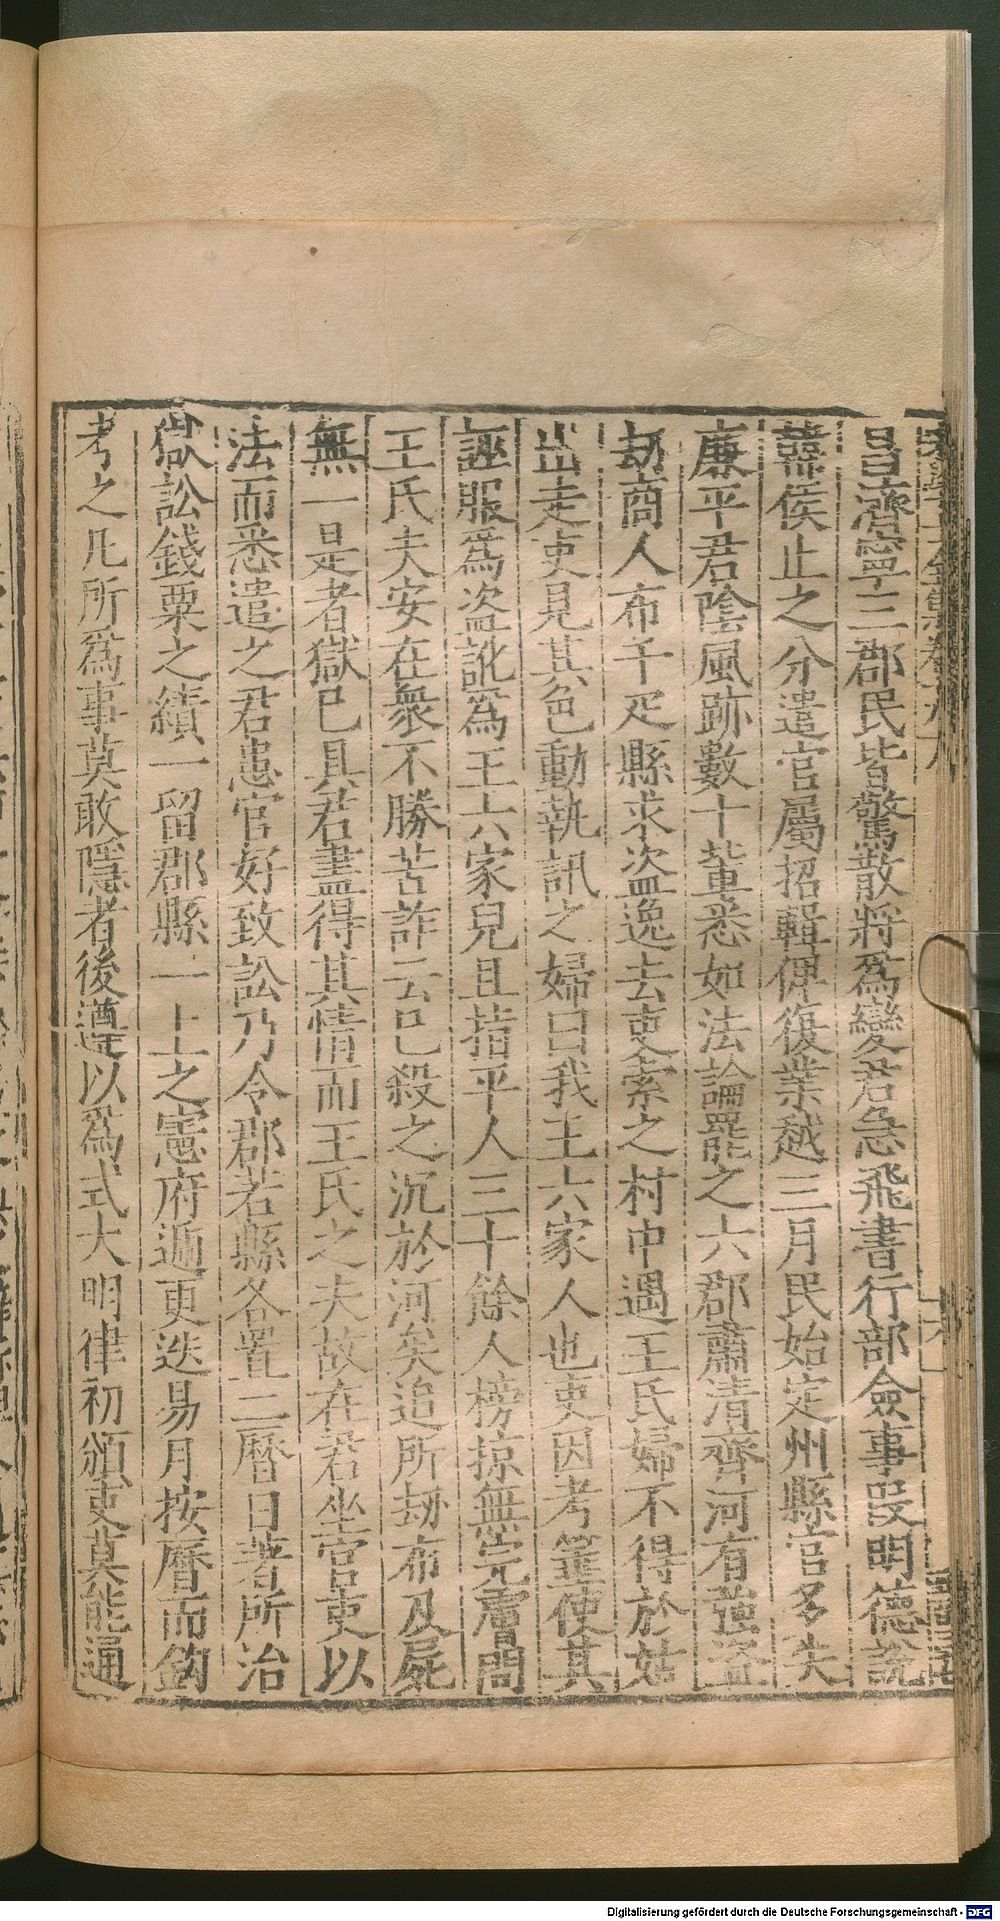 昌濟寧三郡民皆驚散將爲變君急飛書行部僉事叚明德說
蘓侯止之分遣官屬招輯俾復業越三月民始定州縣官多失
廉平君隂風跡數十輩悉如法論罷之六郡肅清齊河有強盗
刼商人布千疋縣求盗逸去吏索之村中遇王氏婦不得於姑
出走吏見其色動執訊之婦曰我王六家人也吏因考箠使其
誣服爲盗訛爲王六家兒且指平人三十餘人榜掠無完膚問
王氏夫安在衆不勝苦詐云已殺之沉於河矣追所刼布及屍
無一是者獄已具君盡得其情而王氏之夫故在君坐官吏以
法而悉遣之君患官好致訟乃令郡若縣各置二曆日著所治
獄訟錢粟之績一留郡縣一上之憲府遁更迭易月按曆而鈎
考之凡所爲事莫敢隱者後遵以爲式大明律初頒吏莫能通
Digitalisierung gefördert durch die Deutsche Forschungsgemeinschaft - DFG